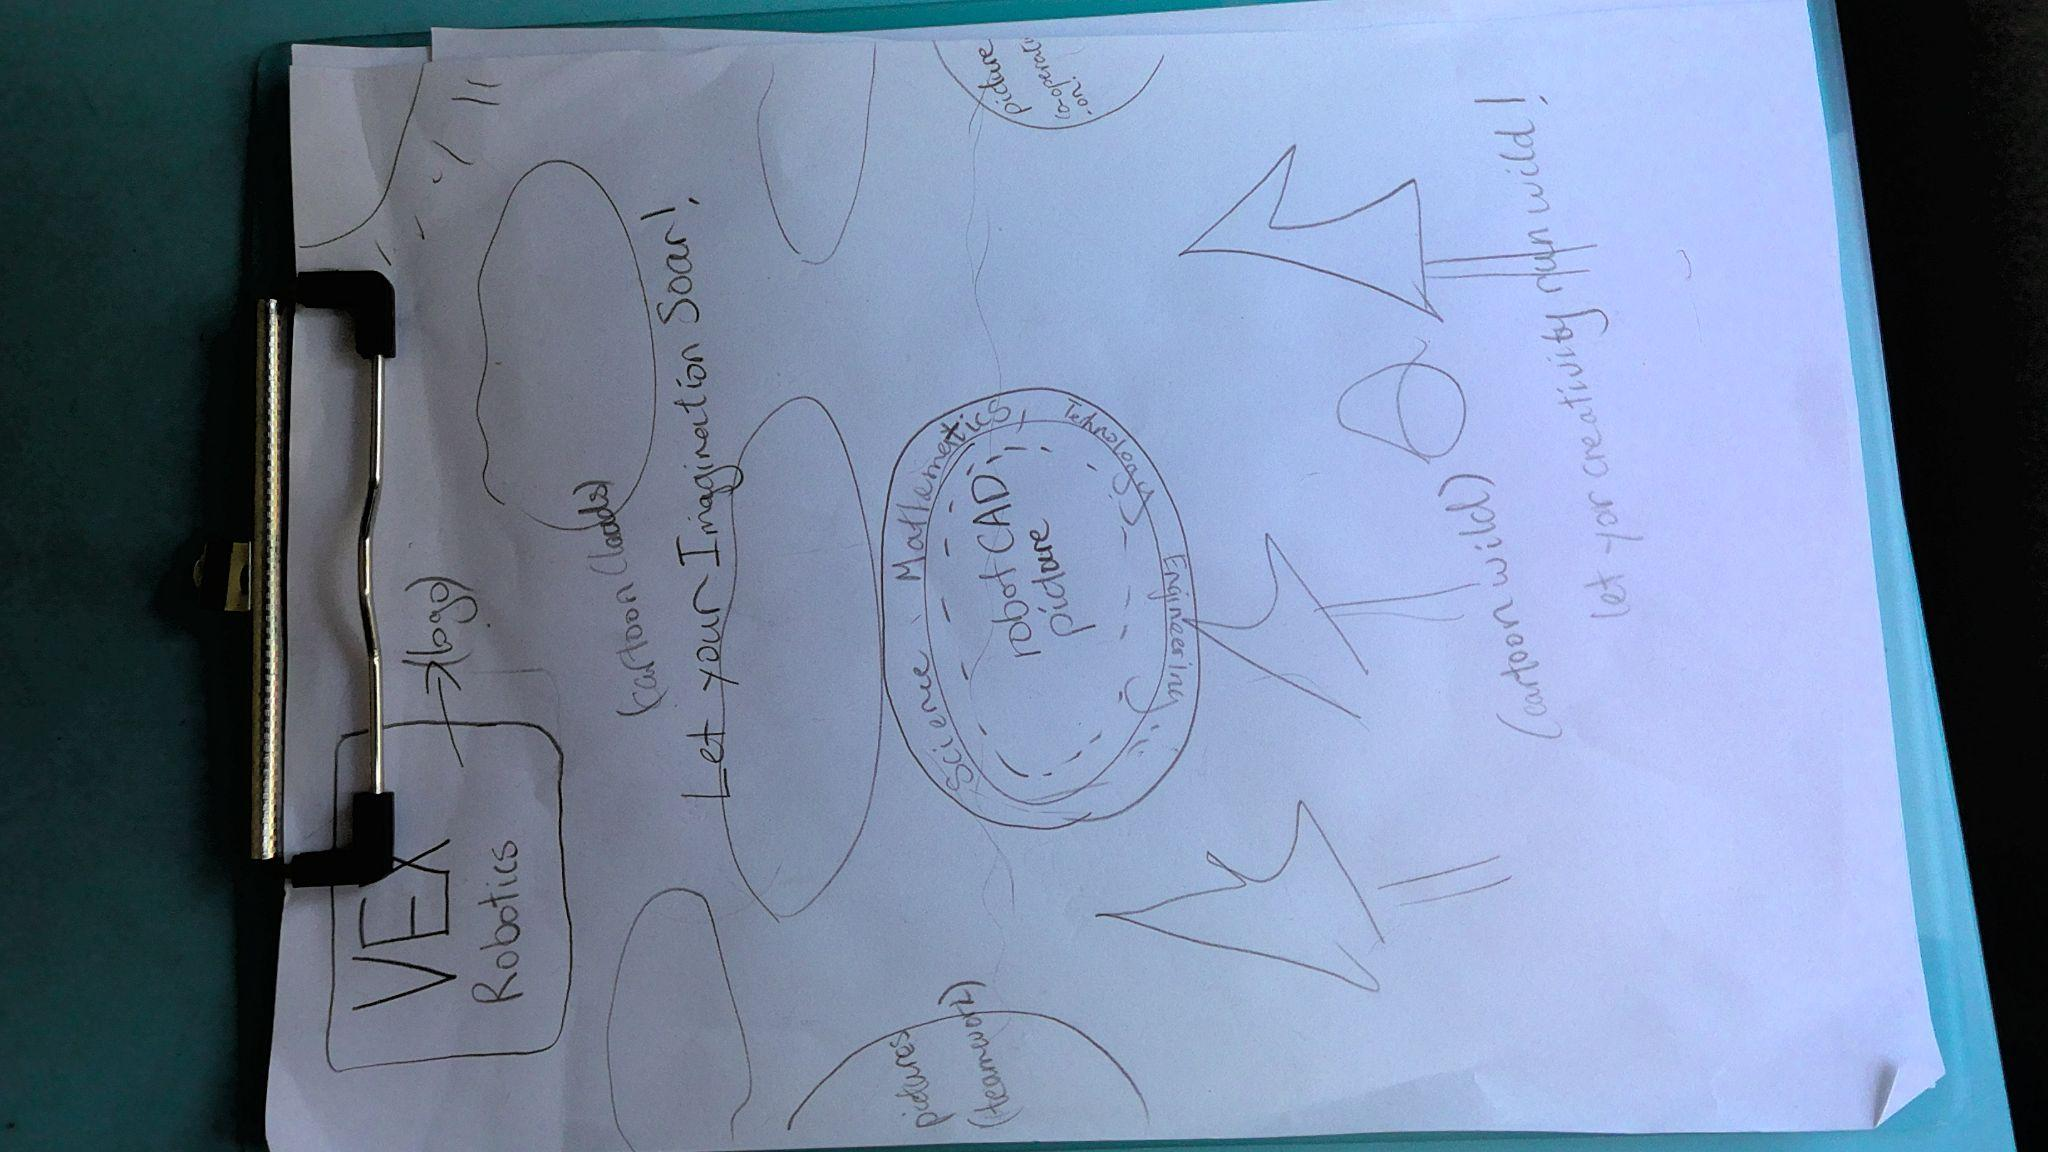 VEX
Robotics
→(logo)
(cartoon Clouds)
Let your Imagination Soar!
Science
Mathematics
Technology
Engineering
robot CAD
picture
pictures
(teamwork)
picture
co-operati
-on!
(cartoon wild)
let your creativity run wild!